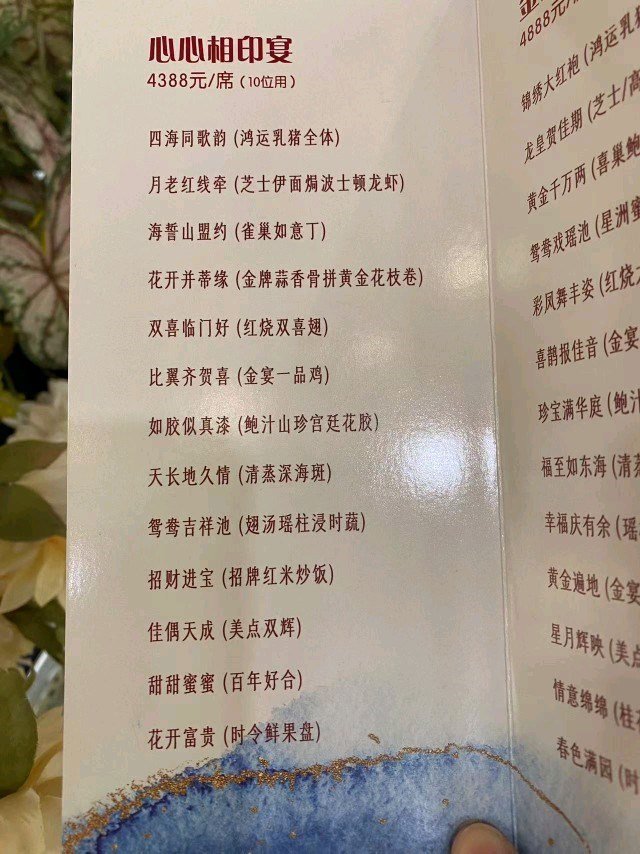 心心相印宴
4388元/席（10位用）
四海同歌韵 (鸿运乳猪全体)
月老红线牵 (芝士伊面焗波士顿龙虾)
海誓山盟约 (雀巢如意丁)
花开并蒂缘 (金牌蒜香骨拼黄金花枝卷)
双喜临门好 (红烧双喜翅)
比翼齐贺喜 (金宴一品鸡)
如胶似真漆 (鲍汁山珍宫廷花胶)
天长地久情 (清蒸深海斑)
鸳鸯吉祥池 (翅汤瑶柱浸时蔬)
招财进宝 (招牌红米炒饭)
佳偶天成 (美点双辉)
甜甜蜜蜜 (百年好合)
花开富贵 (时令鲜果盘)
4888元/
锦绣大红袍 (鸿运乳猪
龙皇贺佳期 (芝士/高
黄金千万两 (喜巢鲍
鸳鸯戏瑶池 (星洲蜜
彩凤舞丰姿 (红烧
喜鹊报佳音 (金宴
珍宝满华庭 (鲍汁
福至如东海 (清蒸
幸福庆有余 (瑶
黄金遍地 (金宴
星月辉映 (美点
情意绵绵 (桂花
春色满园 (时